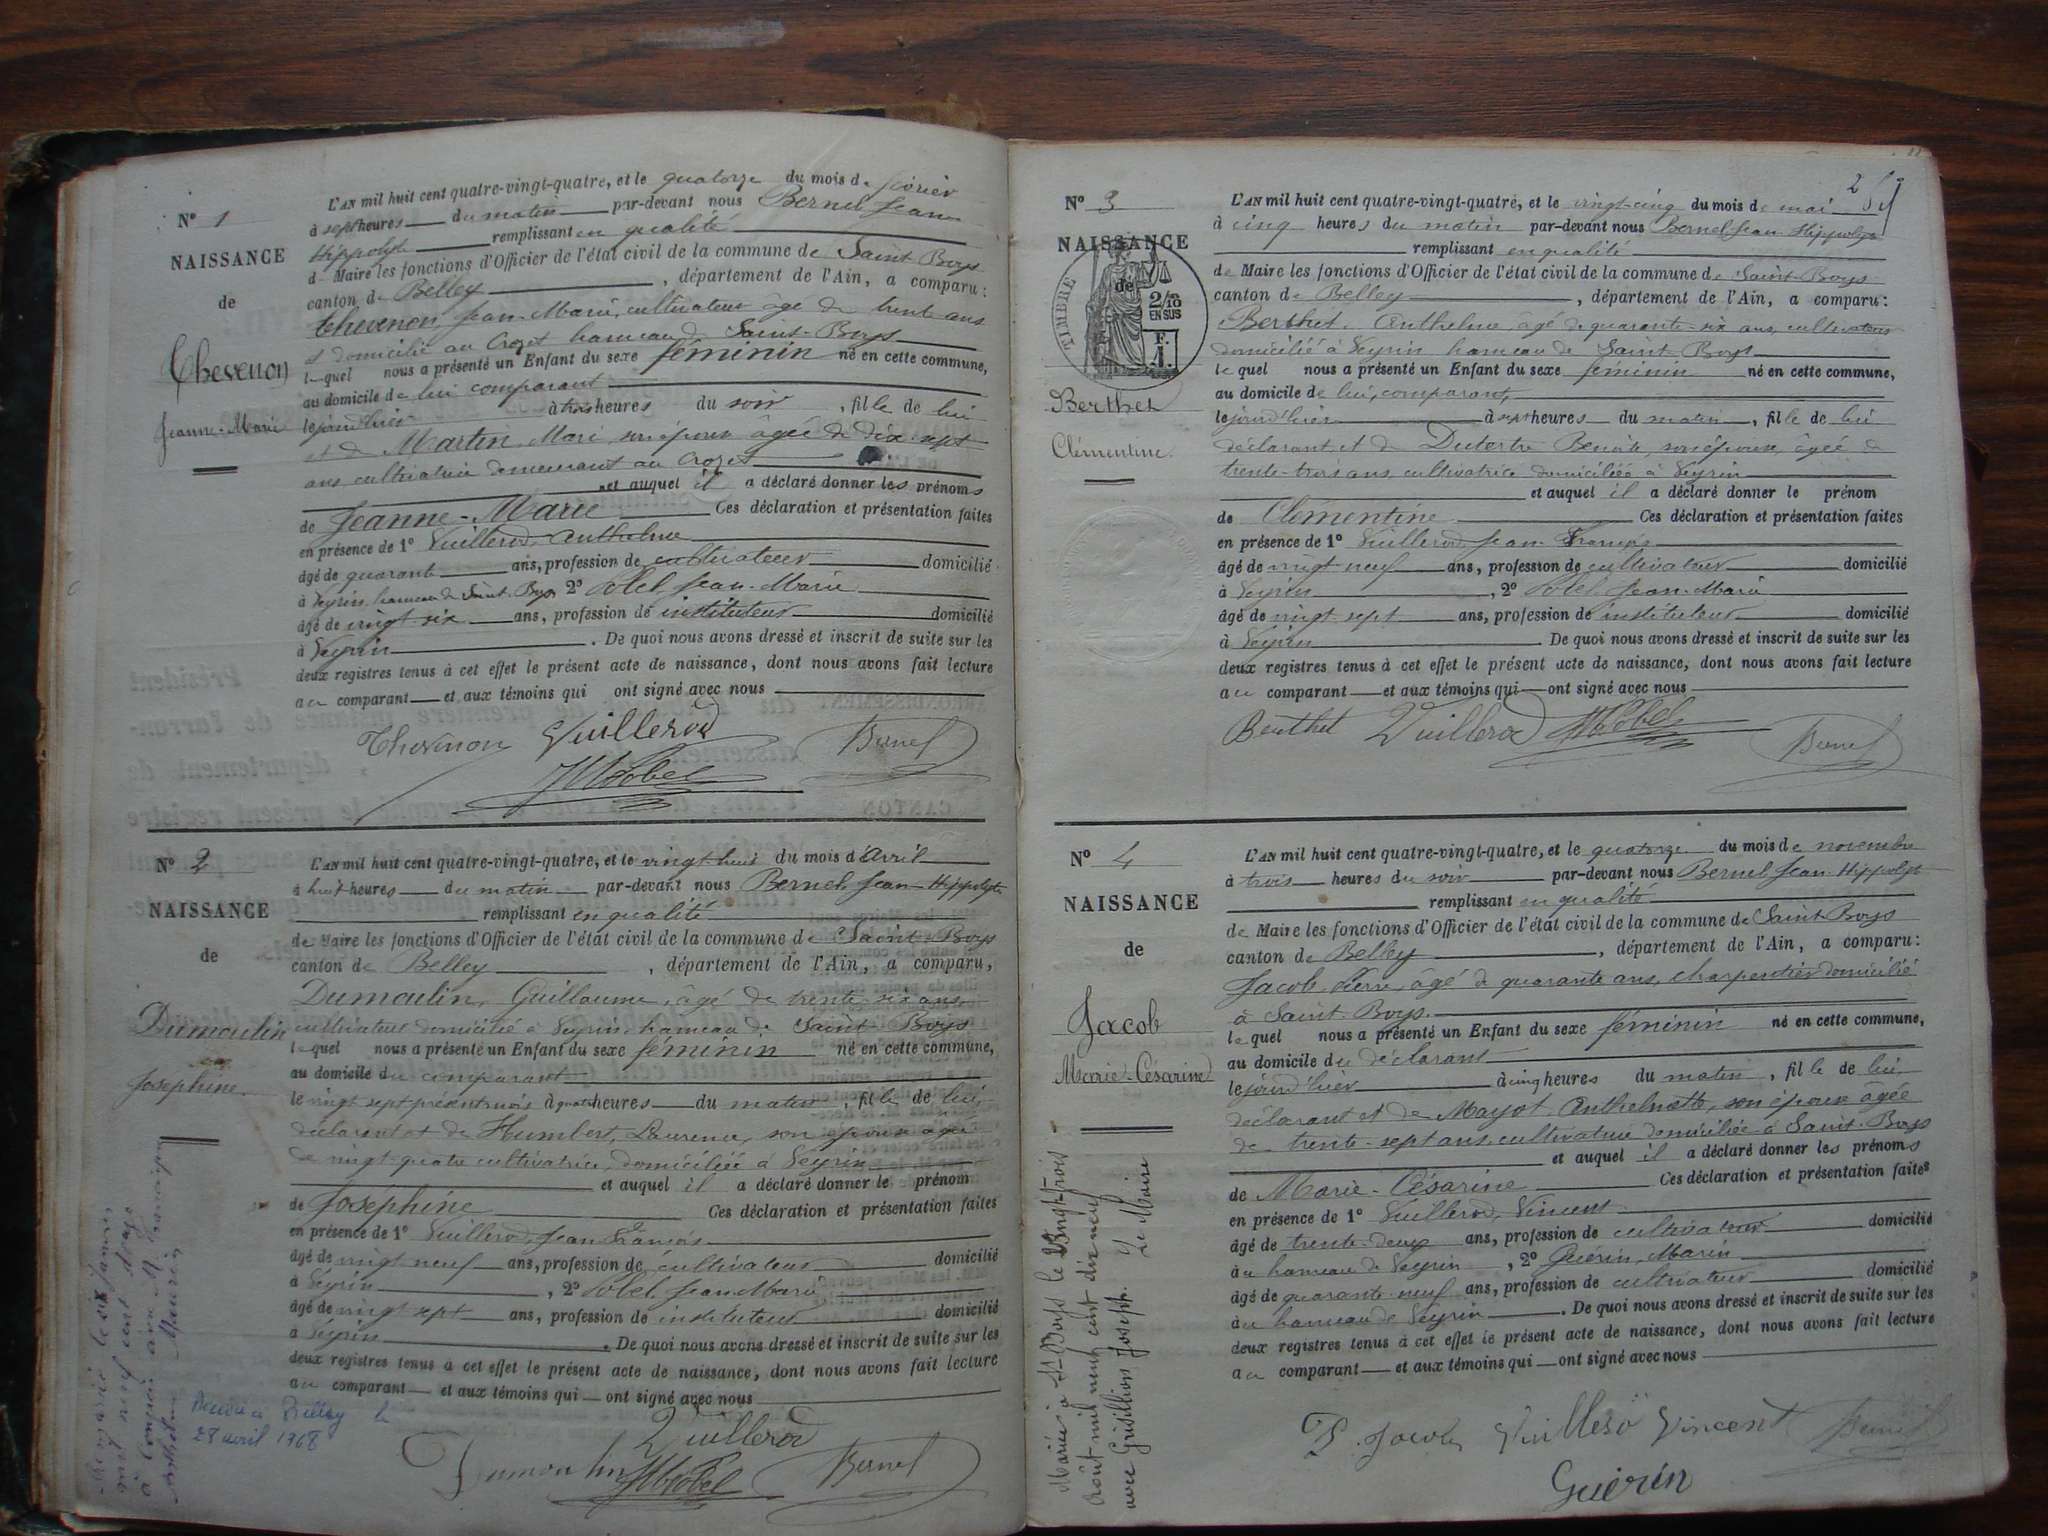 N° 1
NAISSANCE
de
Thevenon
Jeanne-Marie
L'AN mil huit cent quatre-vingt-quatre, et le quatorze du mois de février
à sept heures du matin par-devant nous Bernel Jean
Hippolyte remplissant en qualité
de Maire les fonctions d'Officier de l'état civil de la commune de Saint Boys
canton de Belley, département de l'Ain, a comparu:
Thevenon, Jean-Marie, cultivateur âgé de trente ans
et domicilié au Crozet hameau de Saint-Boys
lequel nous a présenté un Enfant du sexe féminin né en cette commune,
au domicile de lui comparant
le jour d'hier à trois heures du soir, fille de lui
et de Martin Marie, son épouse âgée de dix-sept
ans, cultivatrice demeurant au Crozet
et auquel il a déclaré donner les prénoms
de Jeanne-Marie Ces déclaration et présentation faites
en présence de 1° Vuillerod, Anthelme
âgé de quarante ans, profession de cultivateur domicilié
à Veyrin, hameau de Saint-Boys, 2° Jean-Marie
âgé de vingt six ans, profession de instituteur domicilié
à Veyrin. De quoi nous avons dressé et inscrit de suite sur les
deux registres tenus à cet effet le présent acte de naissance, dont nous avons fait lecture
au comparant et aux témoins qui ont signé avec nous
Thevenon Vuillerod Bernel
N° 2
NAISSANCE
de
Dumoulin
Josephine
L'AN mil huit cent quatre-vingt-quatre, et le vingt-huit du mois d'Avril
à huit heures du matin par-devant nous Bernel Jean-Hippolyte
remplissant en qualité
de Maire les fonctions d'Officier de l'état civil de la commune de Saint-Boys
canton de Belley, département de l'Ain, a comparu,
Dumoulin, Guillaume, âgé de trente-six ans,
cultivateur domicilié à Veyrin hameau de Saint-Boys
lequel nous a présenté un Enfant du sexe féminin né en cette commune,
au domicile du comparant
le vingt sept présent mois à quatre heures du matin, fille de lui,
déclarant et de Humbert, Laurence, son épouse âgée
de vingt-quatre cultivatrice, domiciliée à Veyrin
et auquel il a déclaré donner le prénom
de Joséphine Ces déclaration et présentation faites
en présence de 1° Vuillerod, Jean-François
âgé de vingt neuf ans, profession de cultivateur domicilié
à Veyrin, 2° Jean-Marie
âgé de vingt sept ans, profession de instituteur domicilié
à Veyrin. De quoi nous avons dressé et inscrit de suite sur les
deux registres tenus à cet effet le présent acte de naissance, dont nous avons fait lecture
au comparant et aux témoins qui ont signé avec nous
Vuillerod
Dumoulin Bernel
le six janvier
Décédée à Belley le
28 avril 1968
N° 3
NAISSANCE
de
TIMBRE
2/10
EN SUS
F.
1.
Berthet
Clémentine.
L'AN mil huit cent quatre-vingt-quatre, et le vingt-cinq du mois de mai
à cinq heures du matin par-devant nous Bernel Jean Hippolyte
remplissant en qualité
de Maire les fonctions d'Officier de l'état civil de la commune de Saint-Boys
canton de Belley, département de l'Ain, a comparu:
Berthet, Anthelme, âgé de quarante-six ans, cultivateur
domicilié à Veyrin hameau de Saint-Boys
lequel nous a présenté un Enfant du sexe féminin né en cette commune,
au domicile de lui, comparant,
le jour d'hier à sept heures du matin, fille de lui
déclarant et de Dutertre Benoite, son épouse, âgée de
trente-trois ans, cultivatrice domiciliée à Veyrin
et auquel il a déclaré donner le prénom
de Clémentine Ces déclaration et présentation faites
en présence de 1° Vuillerod Jean François
âgé de vingt neuf ans, profession de cultivateur domicilié
à Veyrin, 2° Jean-Marie
âgé de vingt sept ans, profession de instituteur domicilié
à Veyrin. De quoi nous avons dressé et inscrit de suite sur les
deux registres tenus à cet effet le présent acte de naissance, dont nous avons fait lecture
au comparant et aux témoins qui ont signé avec nous
Berthet Vuillerod Bernel
N° 4
NAISSANCE
de
Jacob
Marie-Césarine
L'AN mil huit cent quatre-vingt-quatre, et le quatorze du mois de novembre
à trois heures du soir par-devant nous Bernel Jean Hippolyte
remplissant en qualité
de Maire les fonctions d'Officier de l'état civil de la commune de Saint Boys
canton de Belley, département de l'Ain, a comparu:
Jacob Pierre, âgé de quarante ans, charpentier domicilié
à Saint-Boys.
lequel nous a présenté un Enfant du sexe féminin né en cette commune,
au domicile du déclarant
le jour d'hier à cinq heures du matin, fille de lui,
déclarant et de Mayot Anthelmette, son épouse âgée
de trente-sept ans, cultivatrice domiciliée à Saint-Boys
et auquel il a déclaré donner les prénoms
de Marie-Césarine Ces déclaration et présentation faites
en présence de 1° Vuillerod, Vincent
âgé de trente-deux ans, profession de cultivateur domicilié
au hameau de Veyrin, 2° Guérin, Marin
âgé de quarante-neuf ans, profession de cultivateur domicilié
au hameau de Veyrin. De quoi nous avons dressé et inscrit de suite sur les
deux registres tenus à cet effet le présent acte de naissance, dont nous avons fait lecture
au comparant et aux témoins qui ont signé avec nous
P. Jacob Vuillerod Vincent Bernel
Guérin
Mariée à St-Boys le vingt-trois
août mil neuf cent dix neuf
avec Grisillion Joseph. Le Maire